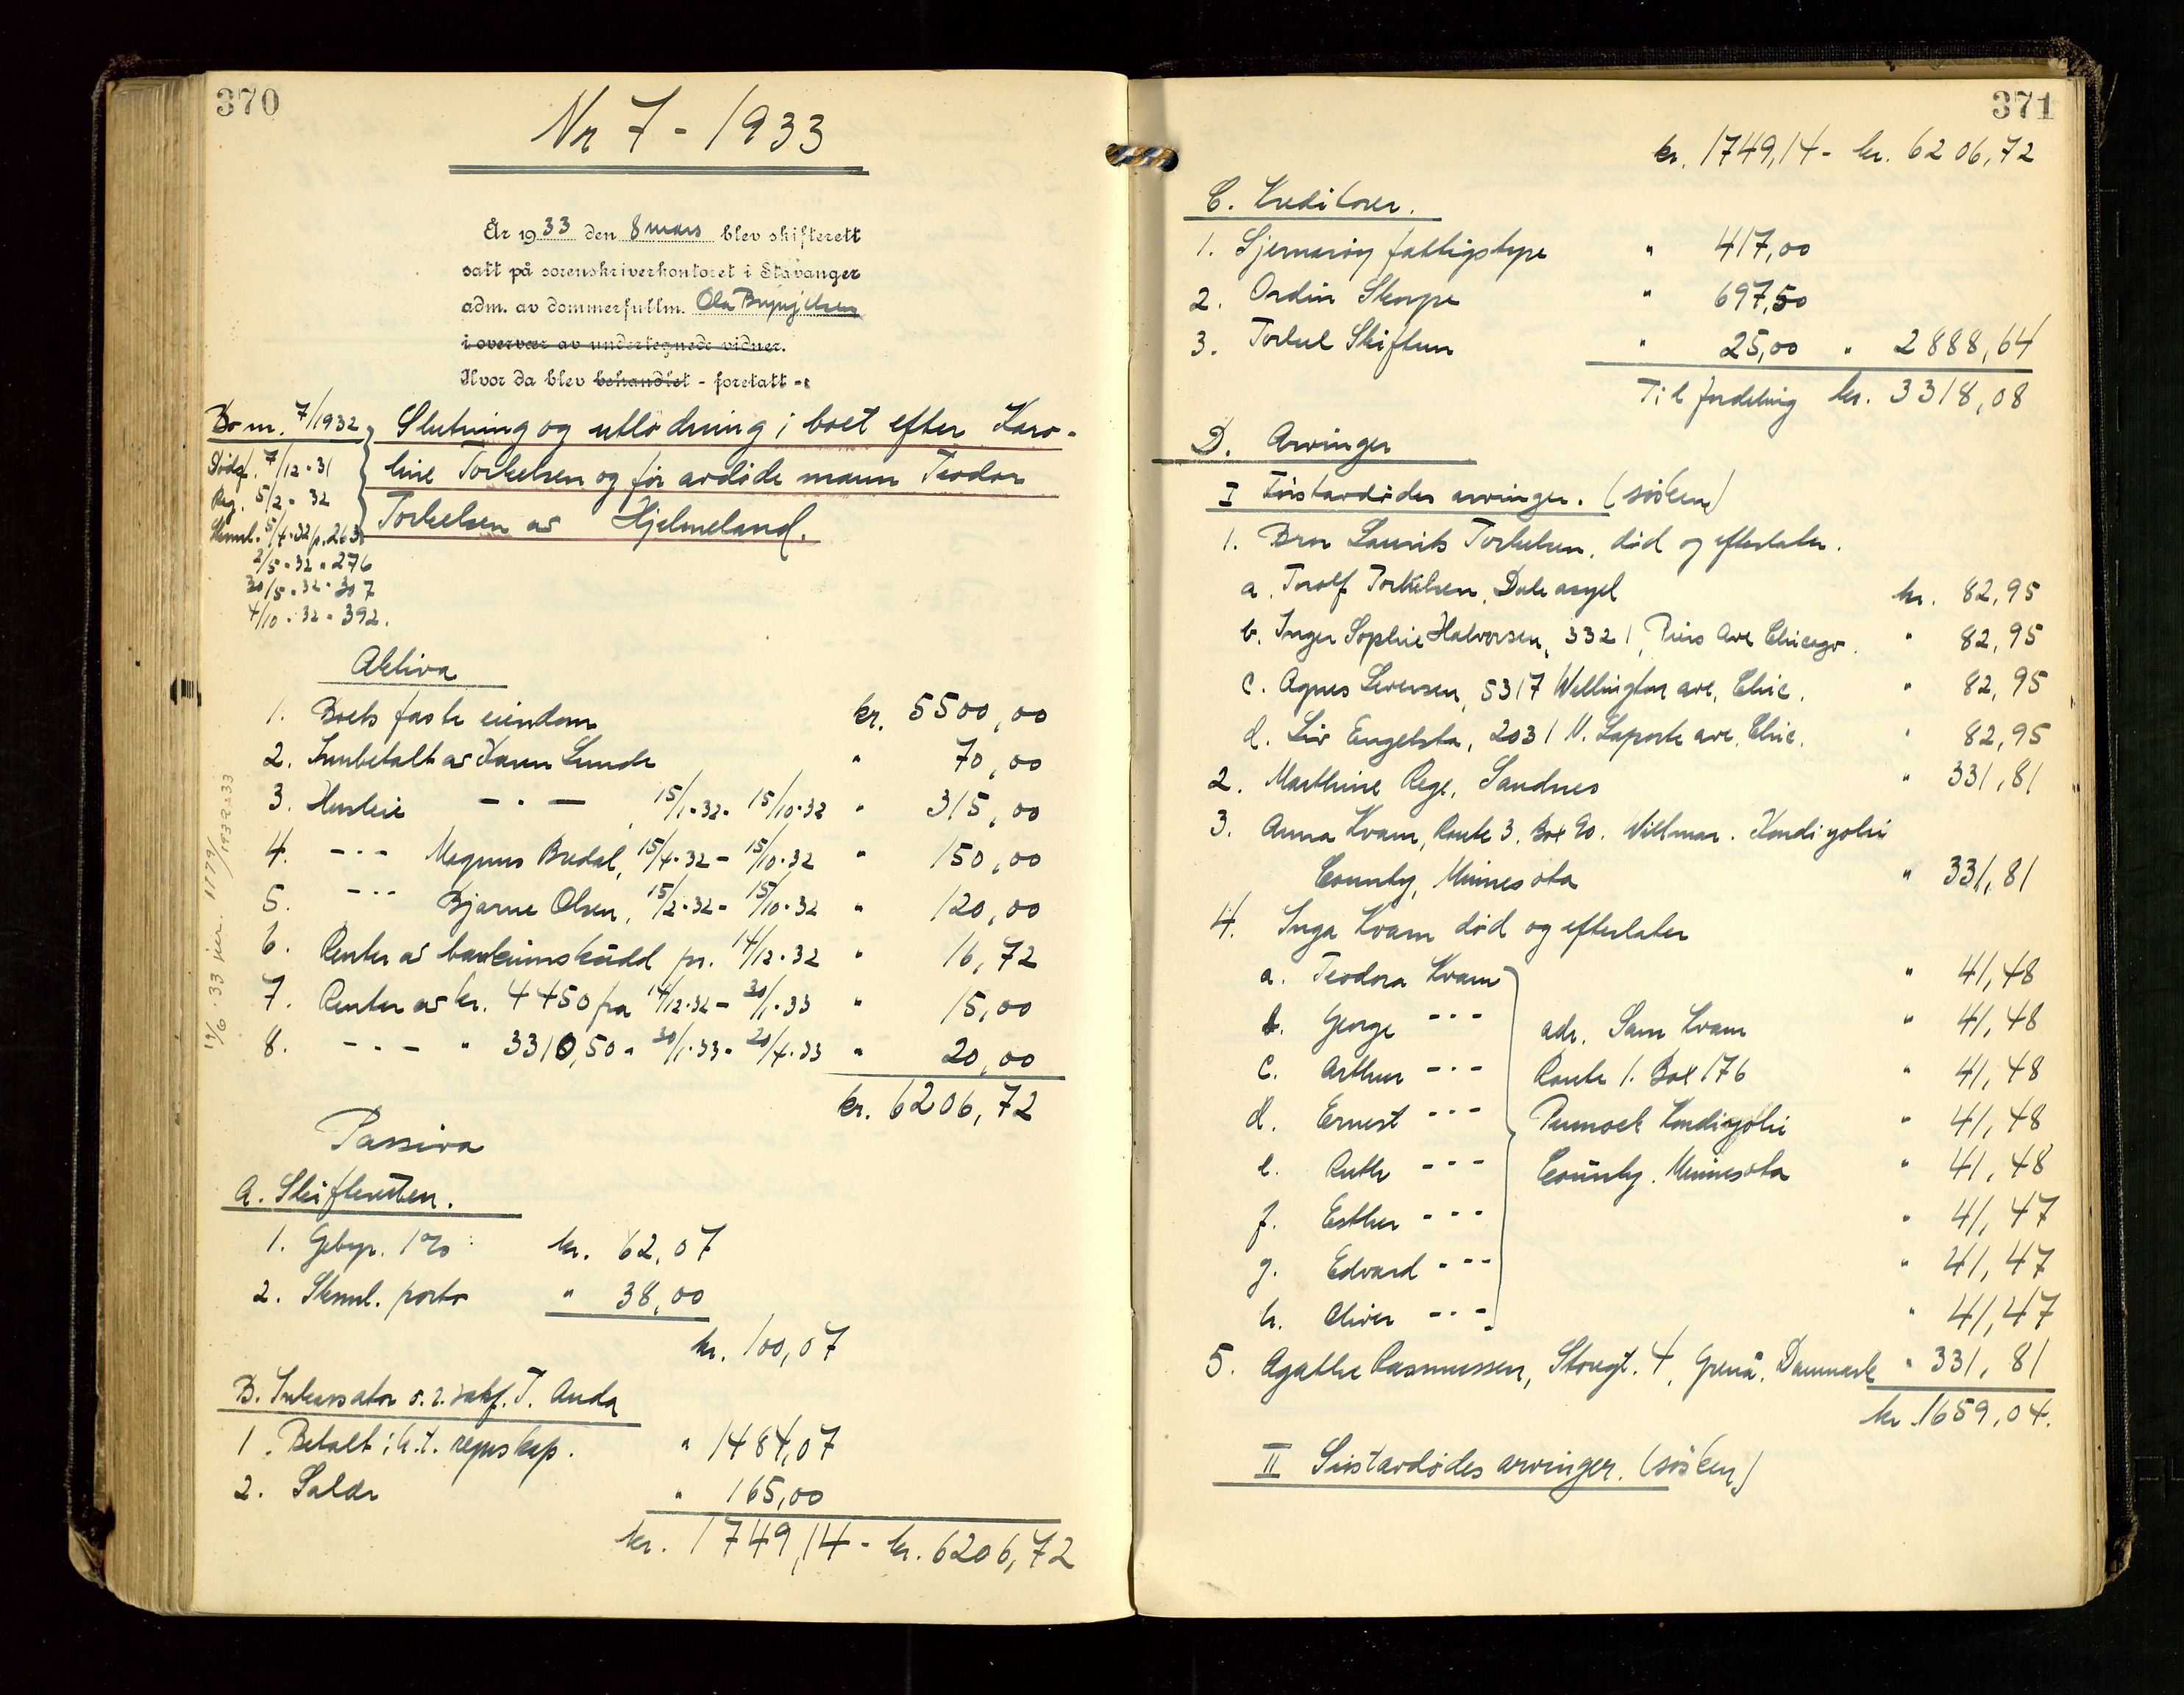 370
Nr 7 - 1933
År 1933 den 8 mars blev skifterett
satt på sorenskriverkontoret i Stavanger
adm. av dommerfullm. Ola Brynjelsen
i overvær av undertegnede vidner.
Hvor da blev behandlet - foretatt -:
Bo nr. 7/1932
Dødsf. 7/12-31
Reg. 5/2-32
Skml. 5/4-32 p. 263
2/5-32 - 276
30/5-32-307
4/10-32-392.
Slutning og utlodning i boet efter Karo-
line Torkelsen og før avdøde mann Teodor
Torkelsen av Hjelmeland.
Aktiva
1. Boets faste eiendom kr. 5500,00
2. Innbetalt av Karen Lunde " 70,00
3. Husleie - " - 15/1-32 - 15/10-32 " 315,00
4. - " - Magnus Bredal, 15/4-32 - 15/10-32 " 150,00
5. - " - Bjarne Olsen, 15/2-32 - 15/10-32 " 120,00
6. Renter av bankinnskudd pr. 14/12-32 " 16,72
7. Renter av kr. 4450 fra 14/12-32 - 30/1-33 " 15,00
8. - " - " 3310,50 " 30/1-33 - 20/4-33 " 20,00
kr. 6206,72
Passiva
A. Skifteretten.
1. Gebyr. 1% kr. 62,07
2. Steml. porto " 38,00
kr. 100,07
B. Inkassator o.r.sakf. T. Anda
1. Betalt i h.t. regnskap. " 1484,07
2. Saldo " 165,00
kr. 1749,14 - kr. 6206,72
19/6-33 jnr. 1779/1932-33
371
kr. 1749,14 - kr. 6206,72
C. Kreditorer.
1. Sjernarøy fattigstyre " 417,00
2. Ordin Skorpe " 697,50
3. Torkel Skiftun " 25,00 " 2888,64
Til fordeling kr. 3318,08
D. Arvinger
I Førstavdødes arvinger. (søsken)
1. Bror Laurits Torkelsen, død og efterlater.
a. Torolf Torkelsen, Dale asyl kr. 82,95
b. Inger Sophie Halvorsen, 3321, Ave Chicago. " 82,95
c. Agnes Severesen, 5317 Wellington ave, Chic. " 82,95
d. Liv Engelsta, 2031 N. Laporte ave. Chic. " 82,95
2. Marthine Rege, Sandnes " 331,81
3. Anna Kvam, Route 3. Box 90. Willmar. Kandiyohi
County, Minnesota " 331,81
4. Inga Kvam død og efterlater
a. Teodora Kvam " 41,48
b. George - " - adr. Sam Kvam " 41,48
c. Arthur - " - Route 1. Box 176 " 41,48
d. Ernest - " - Pennock Kandiyohi " 41,48
e. Ruth - " - County. Minnesota " 41,48
f. Esther - " - " 41,47
g. Edvard - " - " 41,47
h. Oliver - " - " 41,47
5. Agathe Rasmussen, Storegt. 4, Grenå. Danmark " 331,81
kr. 1659,04.
II Sistavdødes arvinger. (søsken)